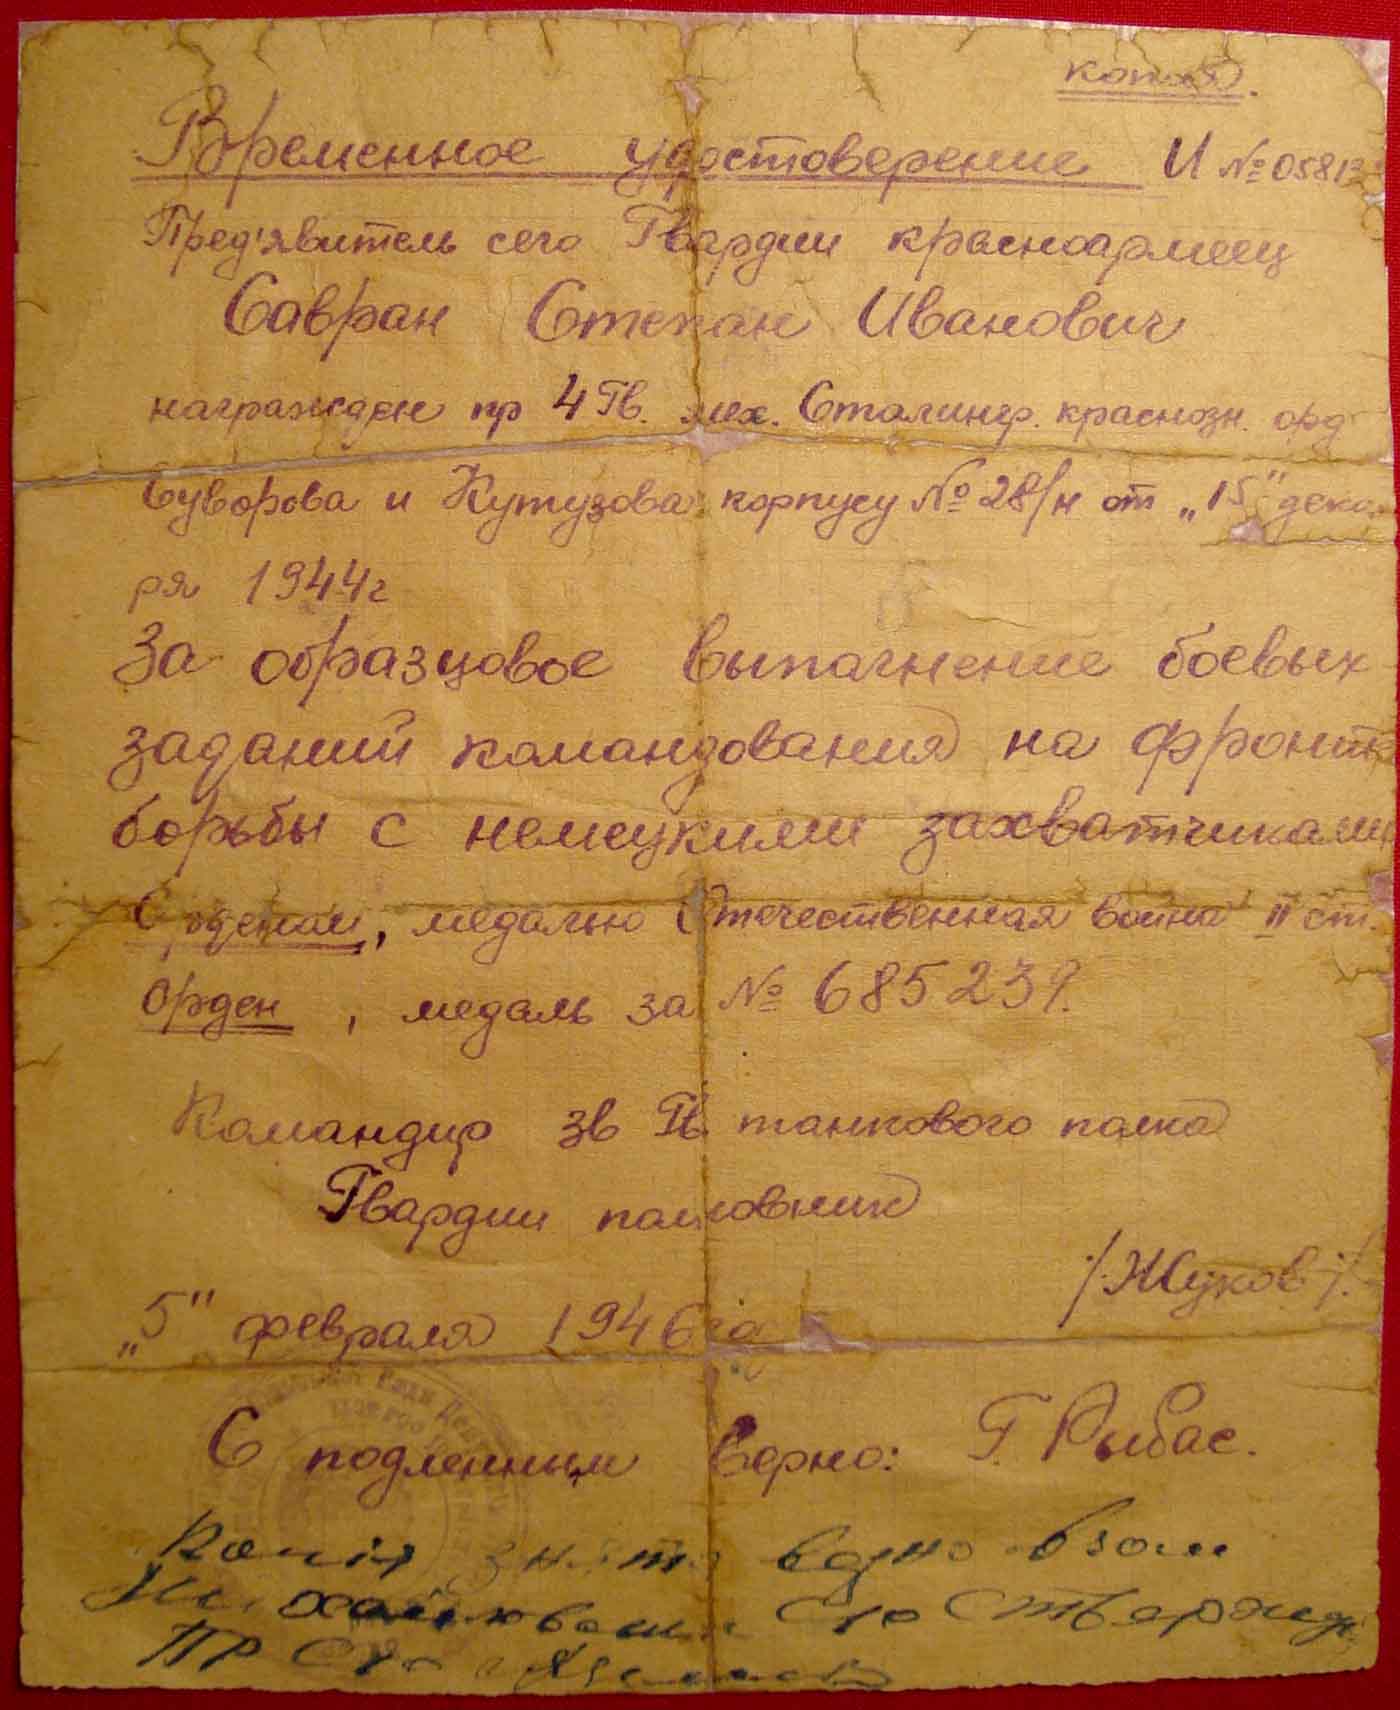 копия.
Временное удостоверение И № 0581
Пред'явитель сего Гвардии красноармеец
Савран Степан Иванович
награжден пр 4 Гв. мех. Сталингр. краснозн. орд
Суворова и Кутузова корпусу № 28/н от „15" декаб
ря 1944г
За образцовое выполнение боевых
заданий командования на фронте
борьбы с немецкими захватчиками
Орденом, медалью Отечественная война II ст.
Орден, медаль за № 685239.
Командир Гв. танкового полка
Гвардии полковник
/Жуков/.
„5" февраля 1946 года
С подленным верно: Г. Рыбас.
Копия знята верно
стверджую